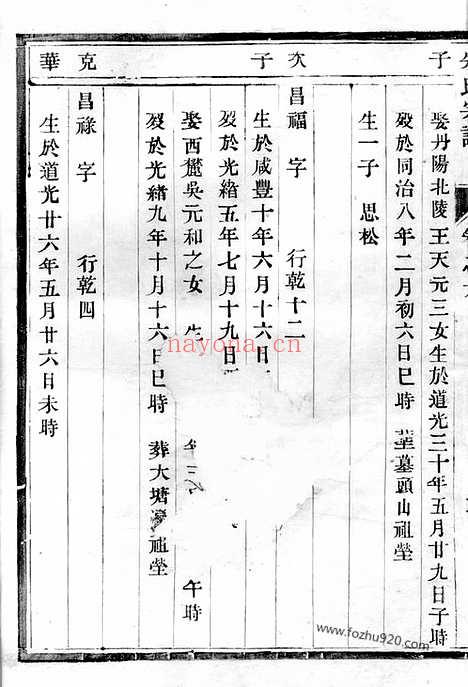 朱氏宗譜
子
娶丹陽北陵王天元三女生於道光三十年五月廿九日子時
歿於同治八年二月初六日巳時 葬墓頭山祖塋
生一子 思松
次子
昌福字 行乾十二
生於咸豐十年六月十六日
歿於光緒五年七月十九日
娶西麓吳元和之女 生 午時
歿於光緒九年十月十六日巳時 葬大塘 祖塋
克華
昌祿字 行乾四
生於道光廿六年五月廿六日未時
nayona.cn
www.fozhu920.com